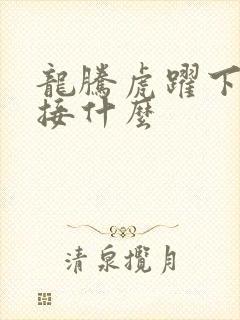 龍騰虎躍下
接什麼
清泉攬月